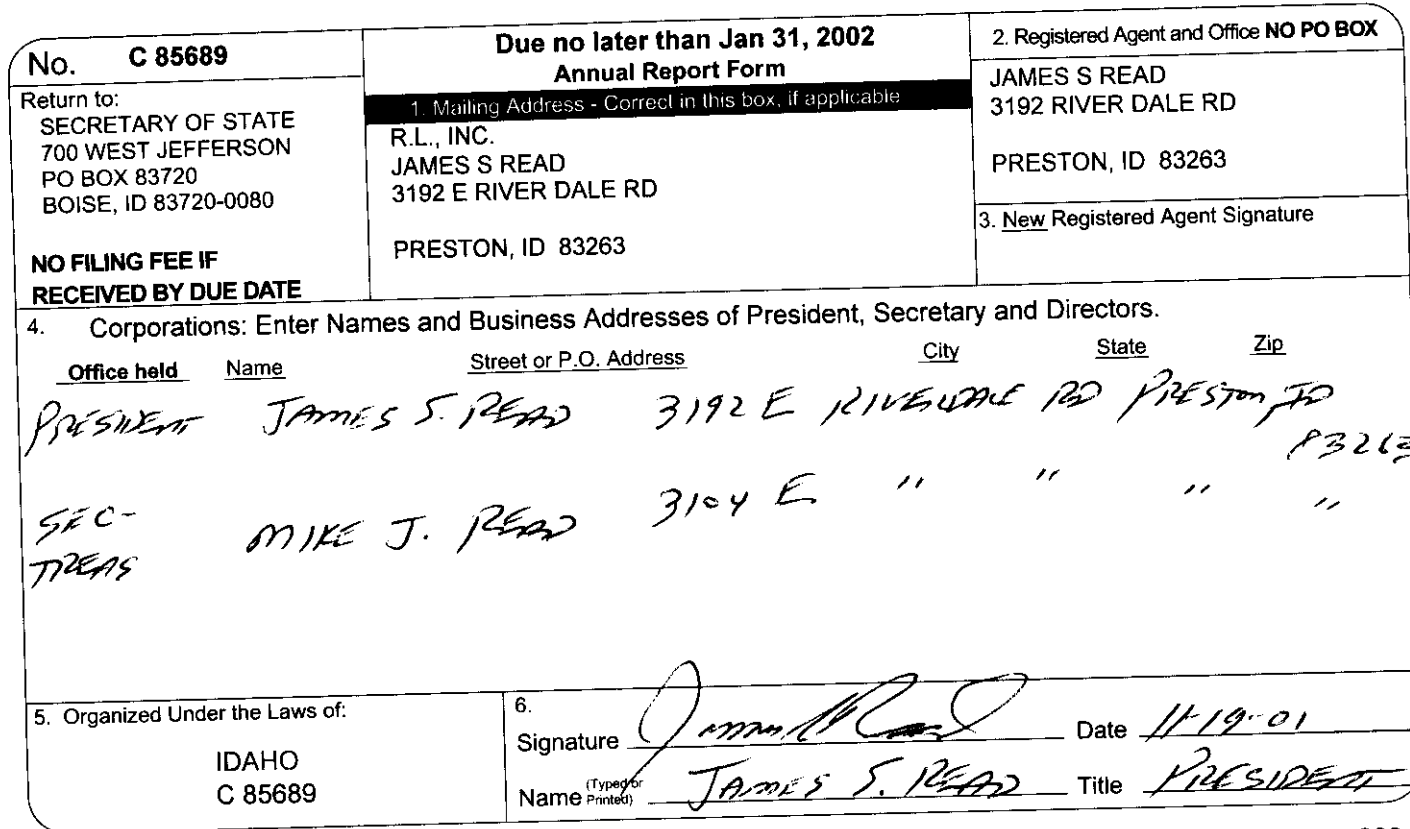 No. C 85689
Return to:
SECRETARY OF STATE
700 WEST JEFFERSON
PO BOX 83720
BOISE, ID 83720-0080
NO FILING FEE IF
RECEIVED BY DUE DATE
Due no later than Jan 31, 2002
Annual Report Form
1. Mailing Address - Correct in this box, if applicable
R.L., INC.
JAMES S READ
3192 E RIVER DALE RD
PRESTON, ID 83263
2. Registered Agent and Office NO PO BOX
JAMES S READ
3192 RIVER DALE RD
PRESTON, ID 83263
3. New Registered Agent Signature
4. Corporations: Enter Names and Business Addresses of President, Secretary and Directors.
Office held Name Street or P.O. Address City State Zip
PRESIDENT JAMES S. READ 3192 E RIVERDALE RD PRESTON, ID
83263
SEC- MIKE J. READ 3104 E " " " "
TREAS
5. Organized Under the Laws of:
IDAHO
C 85689
6.
Signature Date 11-19-01
Name (Typed or Printed) JAMES S. READ Title PRESIDENT